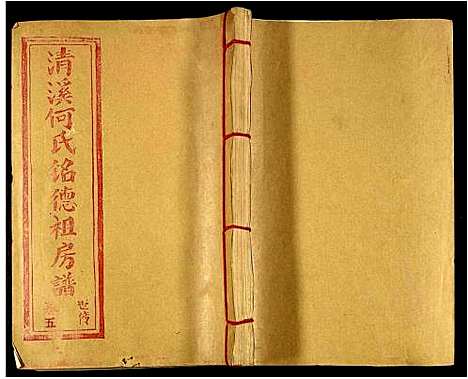 清溪何氏铭德祖房譜
卷五
世传